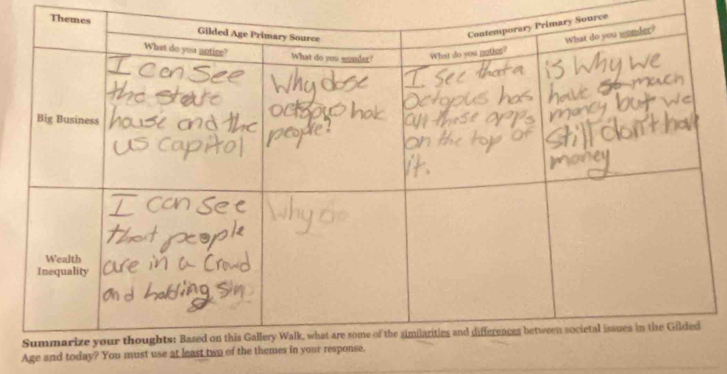 Themes
Gilded Age Primary Source
Contemporary Primary Source
What do you notice?
What do you wonder?
What do you notice?
What do you wonder?
Big Business
I can See
the state
house and the
us capitol
Why dose
octopus hold
people?
I see that a
Octopus has
all these apps
on the top of
it.
is Why We
have so much
money but we
still don't have
money
Wealth
Inequality
I can see
that people
are in a Crowd
and holding sin
Why do
Summarize your thoughts: Based on this Gallery Walk, what are some of the similarities and differences between societal issues in the Gilded
Age and today? You must use at least two of the themes in your response.